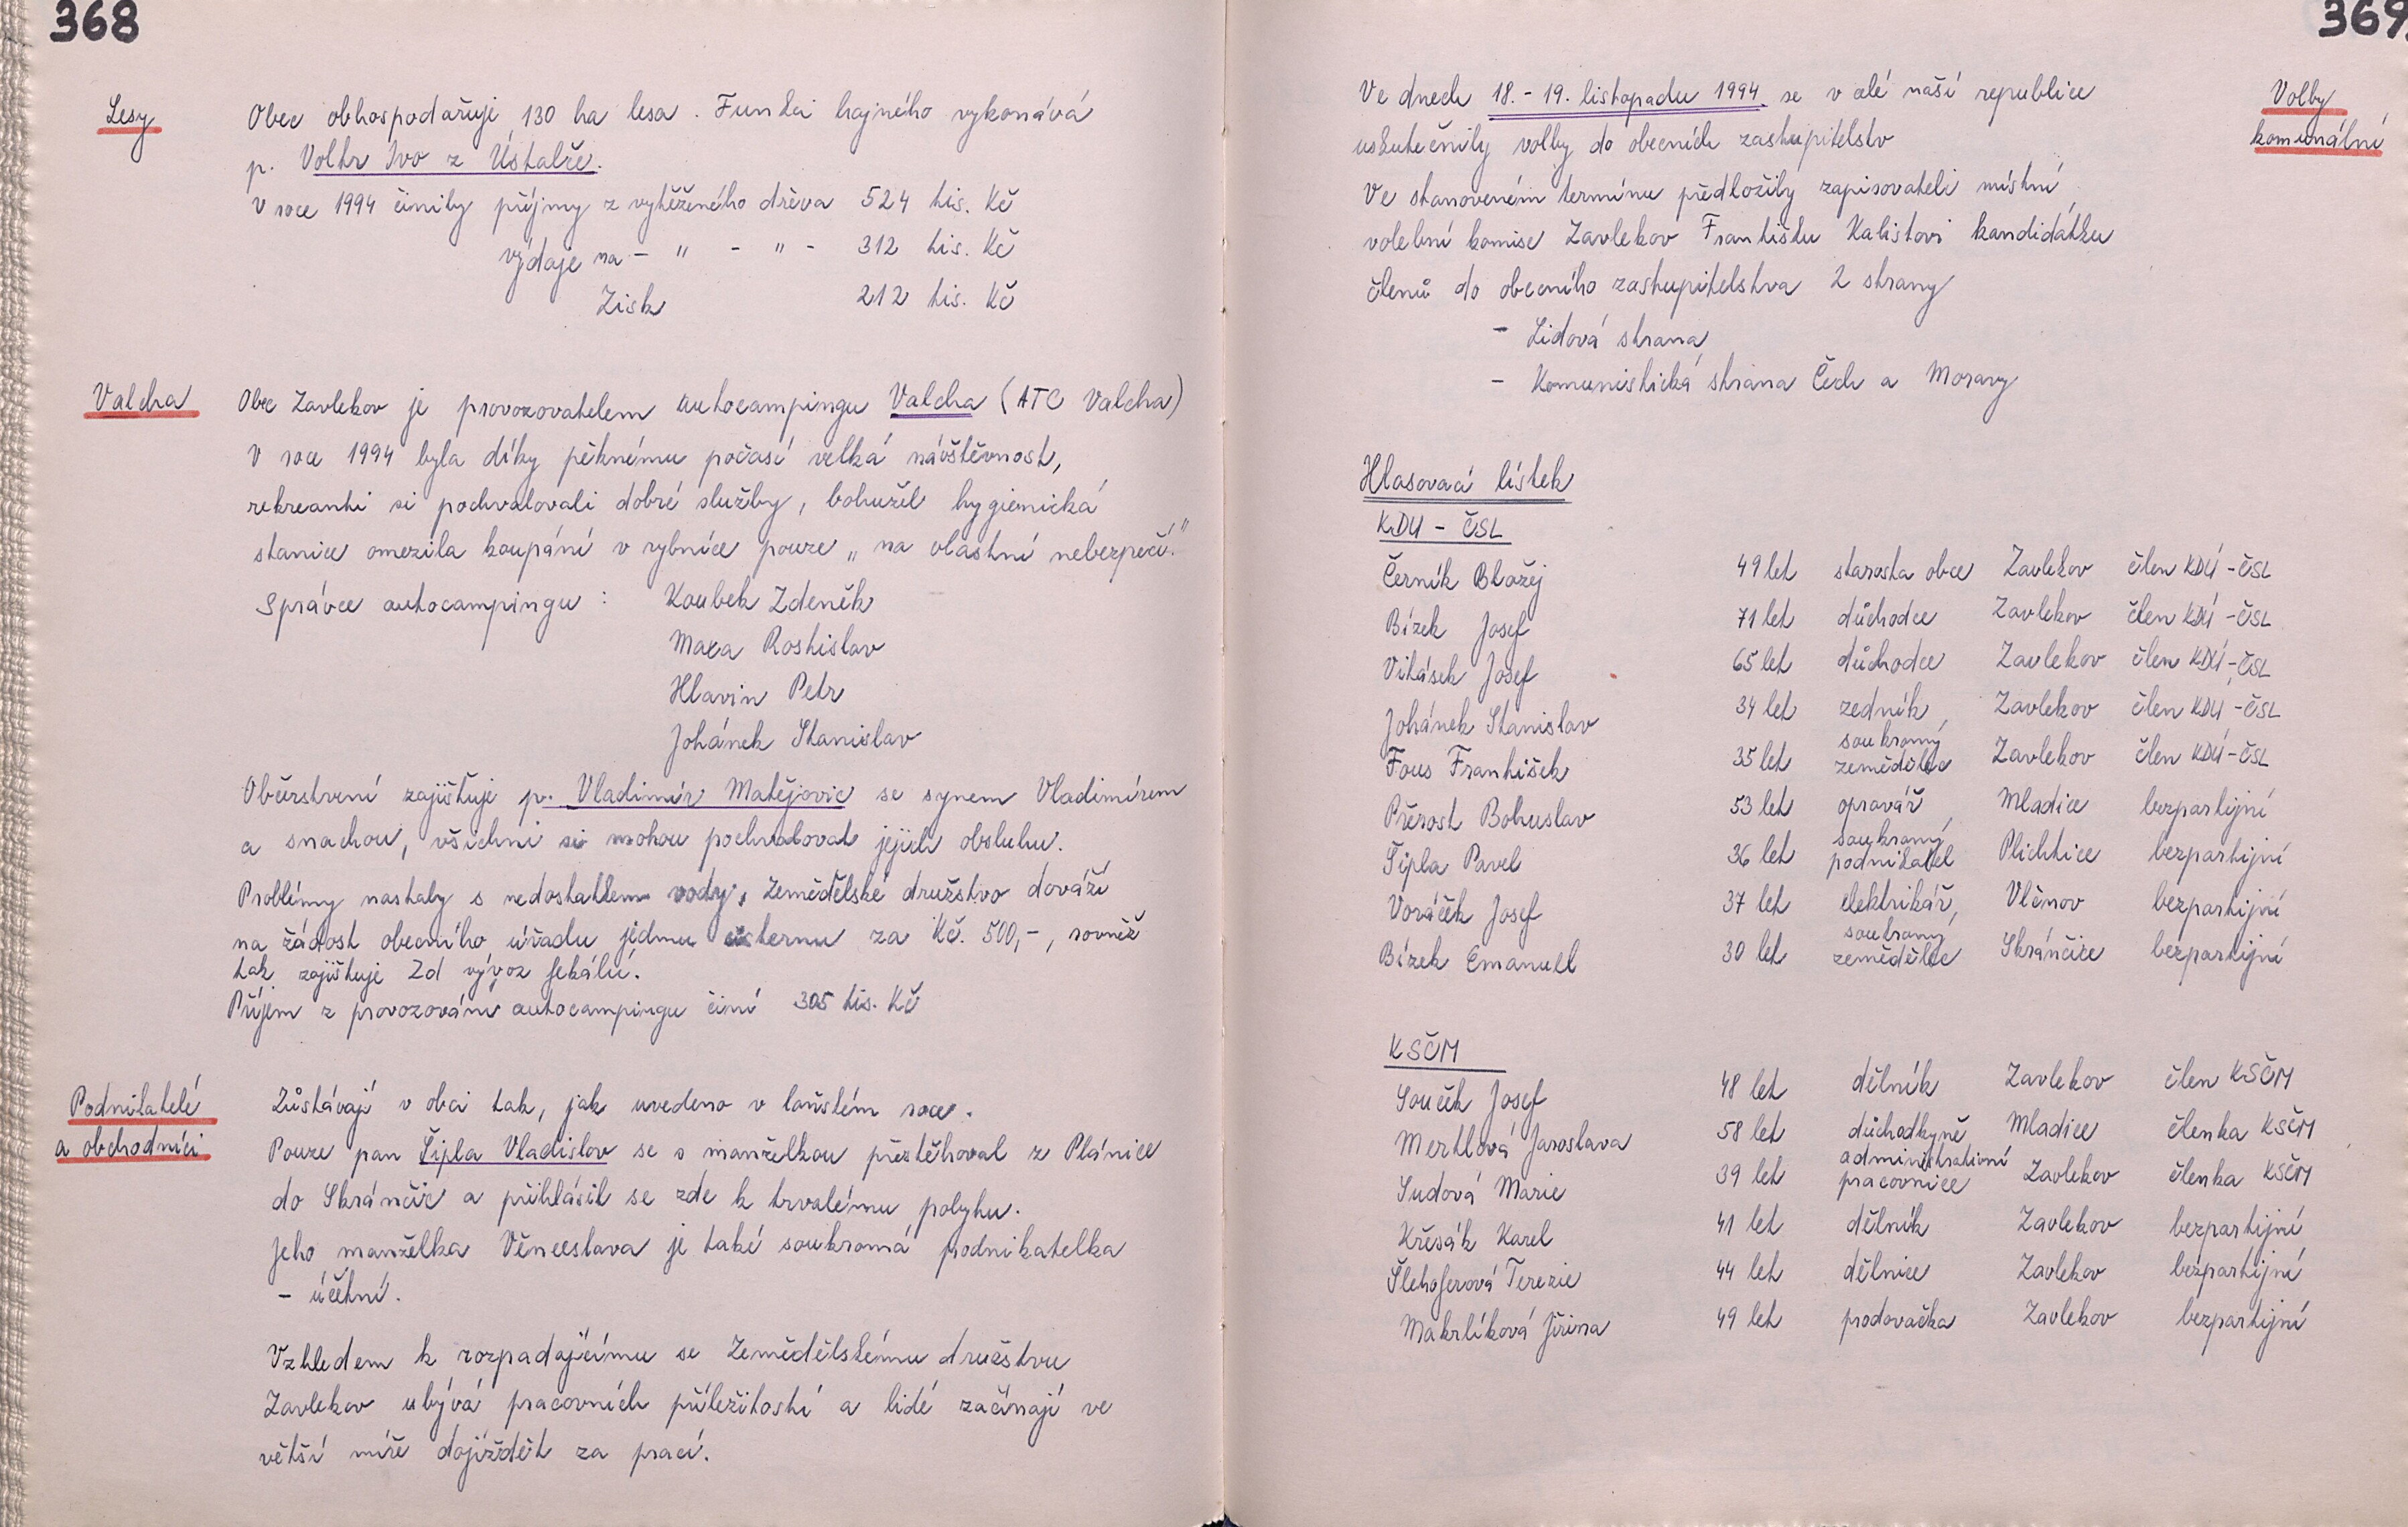 368
Lesy
Obec obhospodařuje 130 ha lesa. Funkci hajného vykonává
p. Voltr Ivo z Ústalče.
V roce 1994 činily příjmy z vytěženého dřeva 524 tis. Kč
výdaje na - " - " - 312 tis. Kč
Zisk 212 tis. Kč
Valcha
Obec Zavlekov je provozovatelem autocampingu Valcha (ATC Valcha)
V roce 1994 byla díky pěknému počasí velká návštěvnost,
rekreanti si pochvalovali dobré služby, bohužel hygienická
stanice omezila koupání v rybníce pouze „na vlastní nebezpečí."
Správce autocampingu : Koubek Zdeněk
Maxa Rostislav
Hlavin Petr
Johánek Stanislav
Občerstvení zajišťuje p. Vladimír Matějovic se synem Vladimírem
a snachou, všichni si mohou pochvalovat jejich obsluhu.
Problémy nastaly s nedostatkem vody, Zemědělské družstvo dováží
na žádost obecního úřadu jednu cisternu za Kč. 500,-, rovněž
tak zajištuje Zd vývoz fekálií.
Příjem z provozování autocampingu činí 305 tis. Kč
Podnikatelé
a obchodníci
Zůstávají v obci tak, jak uvedeno v loňském roce.
Pouze pan Šipla Vladislav se s manželkou přestěhoval z Plánice
do Skránčic a přihlásil se zde k trvalému pobytu.
Jeho manželka Věnceslava je také soukromá podnikatelka
- účetní.
Vzhledem k rozpadajícímu se Zemědělskému družstvu
Zavlekov ubývá pracovních příležitostí a lidé začínají ve
větší míře dojíždět za prací.
369
Volby
komunální
Ve dnech 18. - 19. listopadu 1994 se v celé naší republice
uskutečnily volby do obecních zastupitelstv
Ve stanoveném termínu předložily zapisovateli místní
volební komise Zavlekov Františku Kalistovi kandidátku
členů do obecního zastupitelstva 2 strany
- Lidová strana
- Komunistická strana Čech a Moravy
Hlasovací lístek
KDU - ČSL
Černík Blažej 49 let starosta obce Zavlekov člen KDU - ČSL
Bízek Josef 71 let důchodce Zavlekov člen KDU - ČSL
Vitásek Josef 65 let důchodce Zavlekov člen KDU - ČSL
Johánek Stanislav 34 let zedník Zavlekov člen KDU - ČSL
Fous František 35 let soukromý zemědělec Zavlekov člen KDU - ČSL
Přerost Bohuslav 53 let opravář Mladice bezpartijní
Šipla Pavel 36 let soukromý podnikatel Plichtice bezpartijní
Voráček Josef 37 let elektrikář, Vlčnov bezpartijní
Bízek Emanuel 30 let soukromý zemědělec Skránčice bezpartijní
KSČM
Souček Josef 48 let dělník Zavlekov člen KSČM
Mertlová Jaroslava 58 let důchodkyně Mladice členka KSČM
Sudová Marie 39 let administrativní pracovnice Zavlekov členka KSČM
Křesák Karel 41 let dělník Zavlekov bezpartijní
Šlehoferová Terezie 44 let dělnice Zavlekov bezpartijní
Makrlíková Jiřina 49 let prodavačka Zavlekov bezpartijní